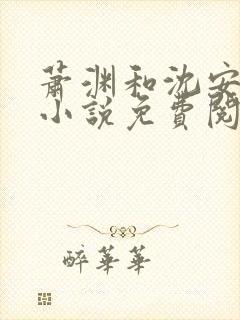 萧渊和沈安
小说免費閱
醉華華